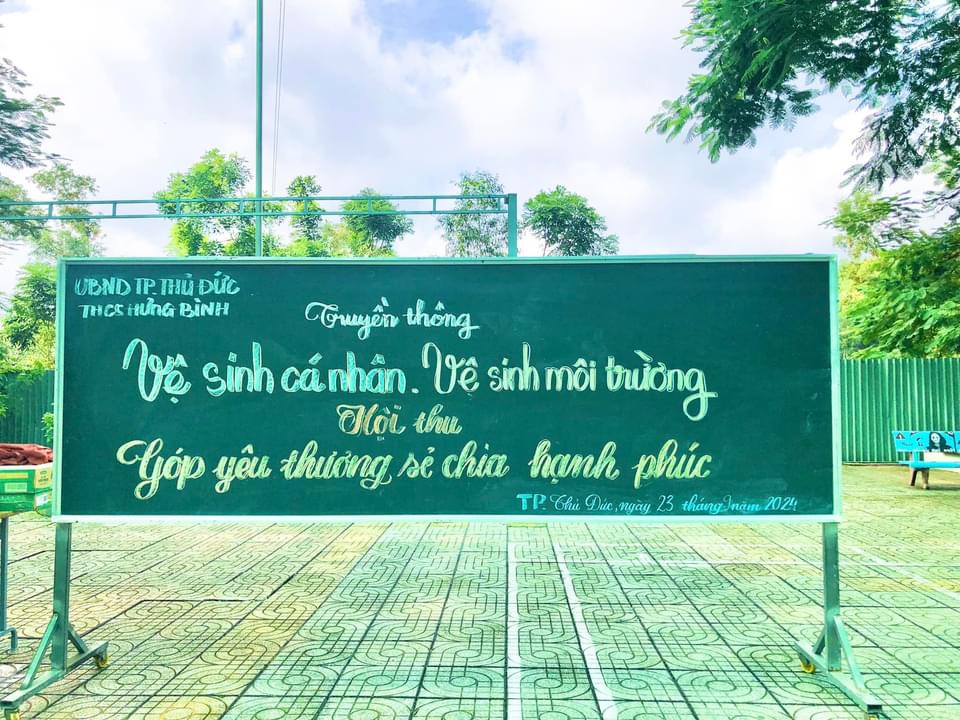 UBND TP. THỦ ĐỨC
THCS HƯNG BÌNH
Truyền thông
Vệ sinh cá nhân. Vệ sinh môi trường
Hội thu
Góp yêu thương sẻ chia hạnh phúc
TP. Thủ Đức, ngày 23 tháng 9 năm 2024